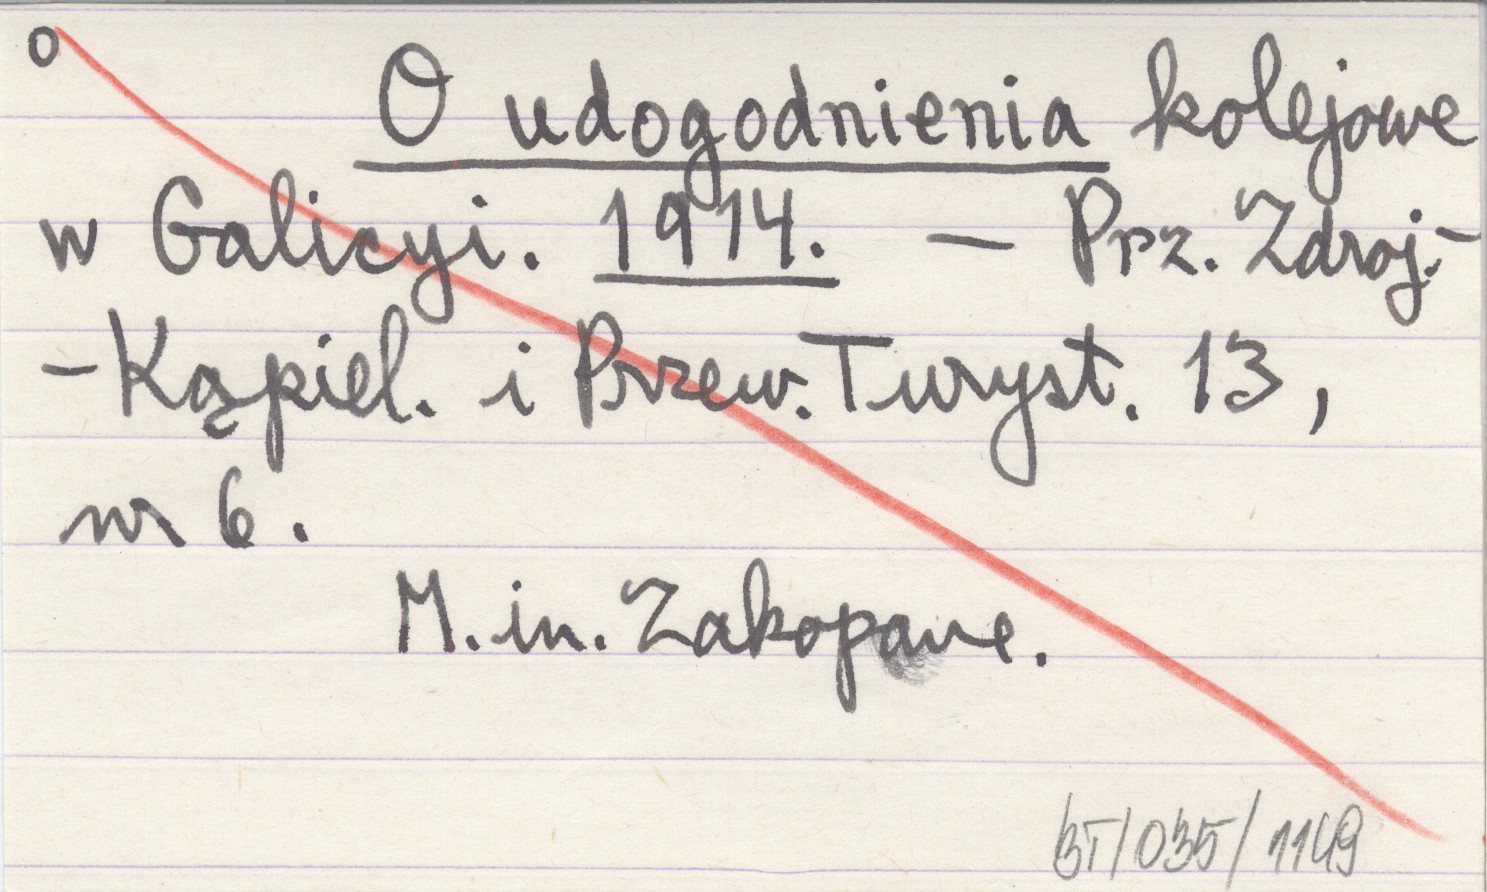 o
O udogodnienia kolejowe
w Galicyi. 1914. — Prz. Zdroj.-
-Kąpiel. i Przew. Turyst. 13,
nr 6.
M. in. Zakopane.
BT/035/1149